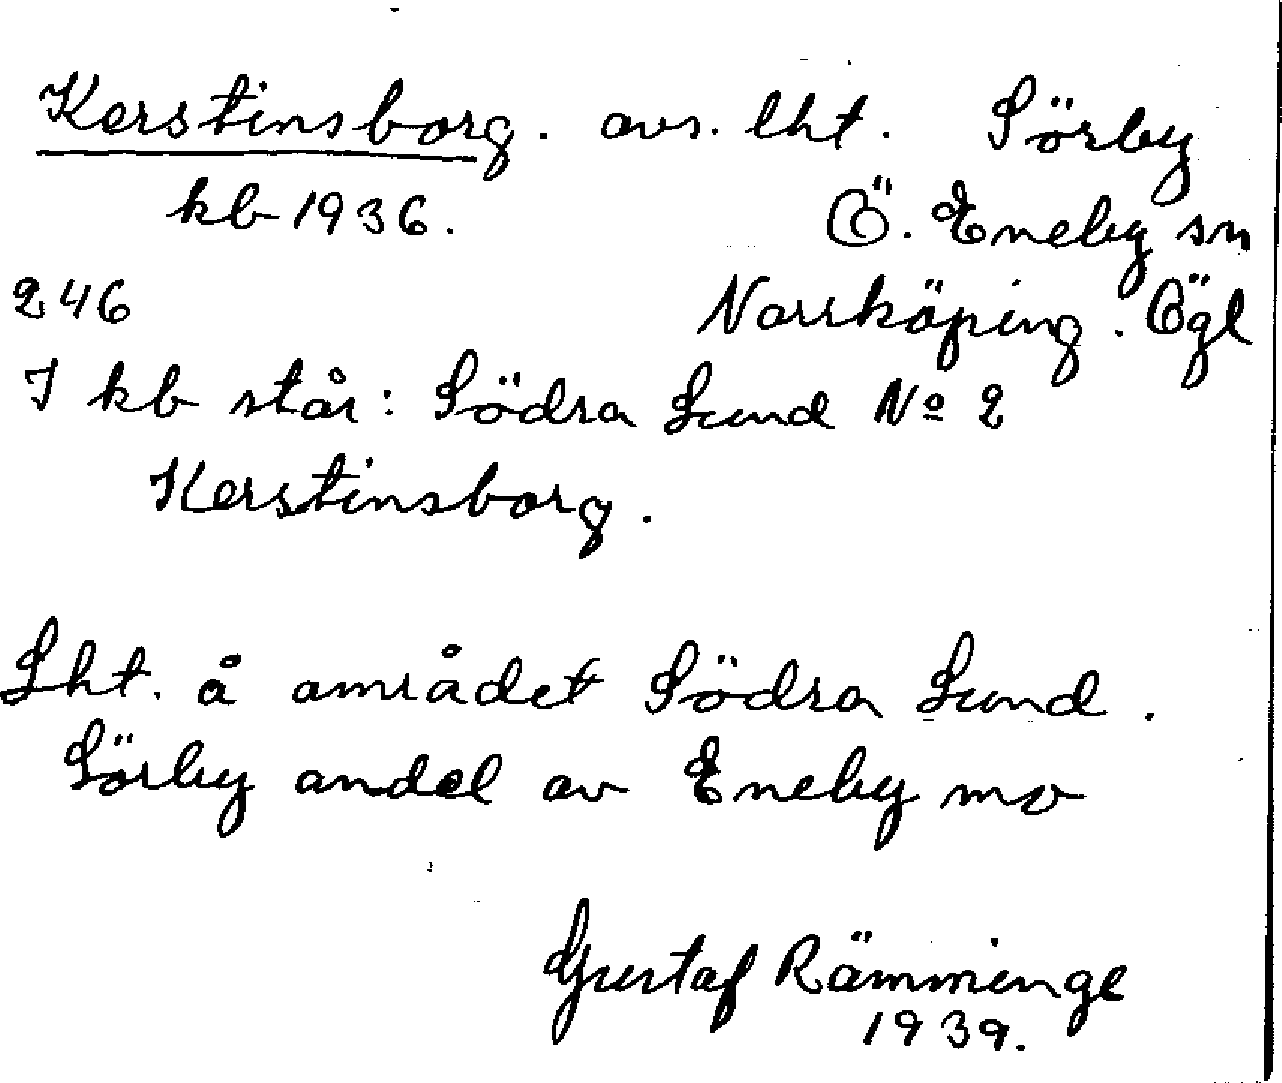 Kerstinsborg. avs. lht. Sörby
kb 1936. Ö. Eneby sn
246 Norrköping. Ögl
I kb står: Södra Lund No 2
Kerstinsborg.
Lht. å området Södra Lund.
Sörby andel av Eneby mo
Gustaf Rämminge
1939.